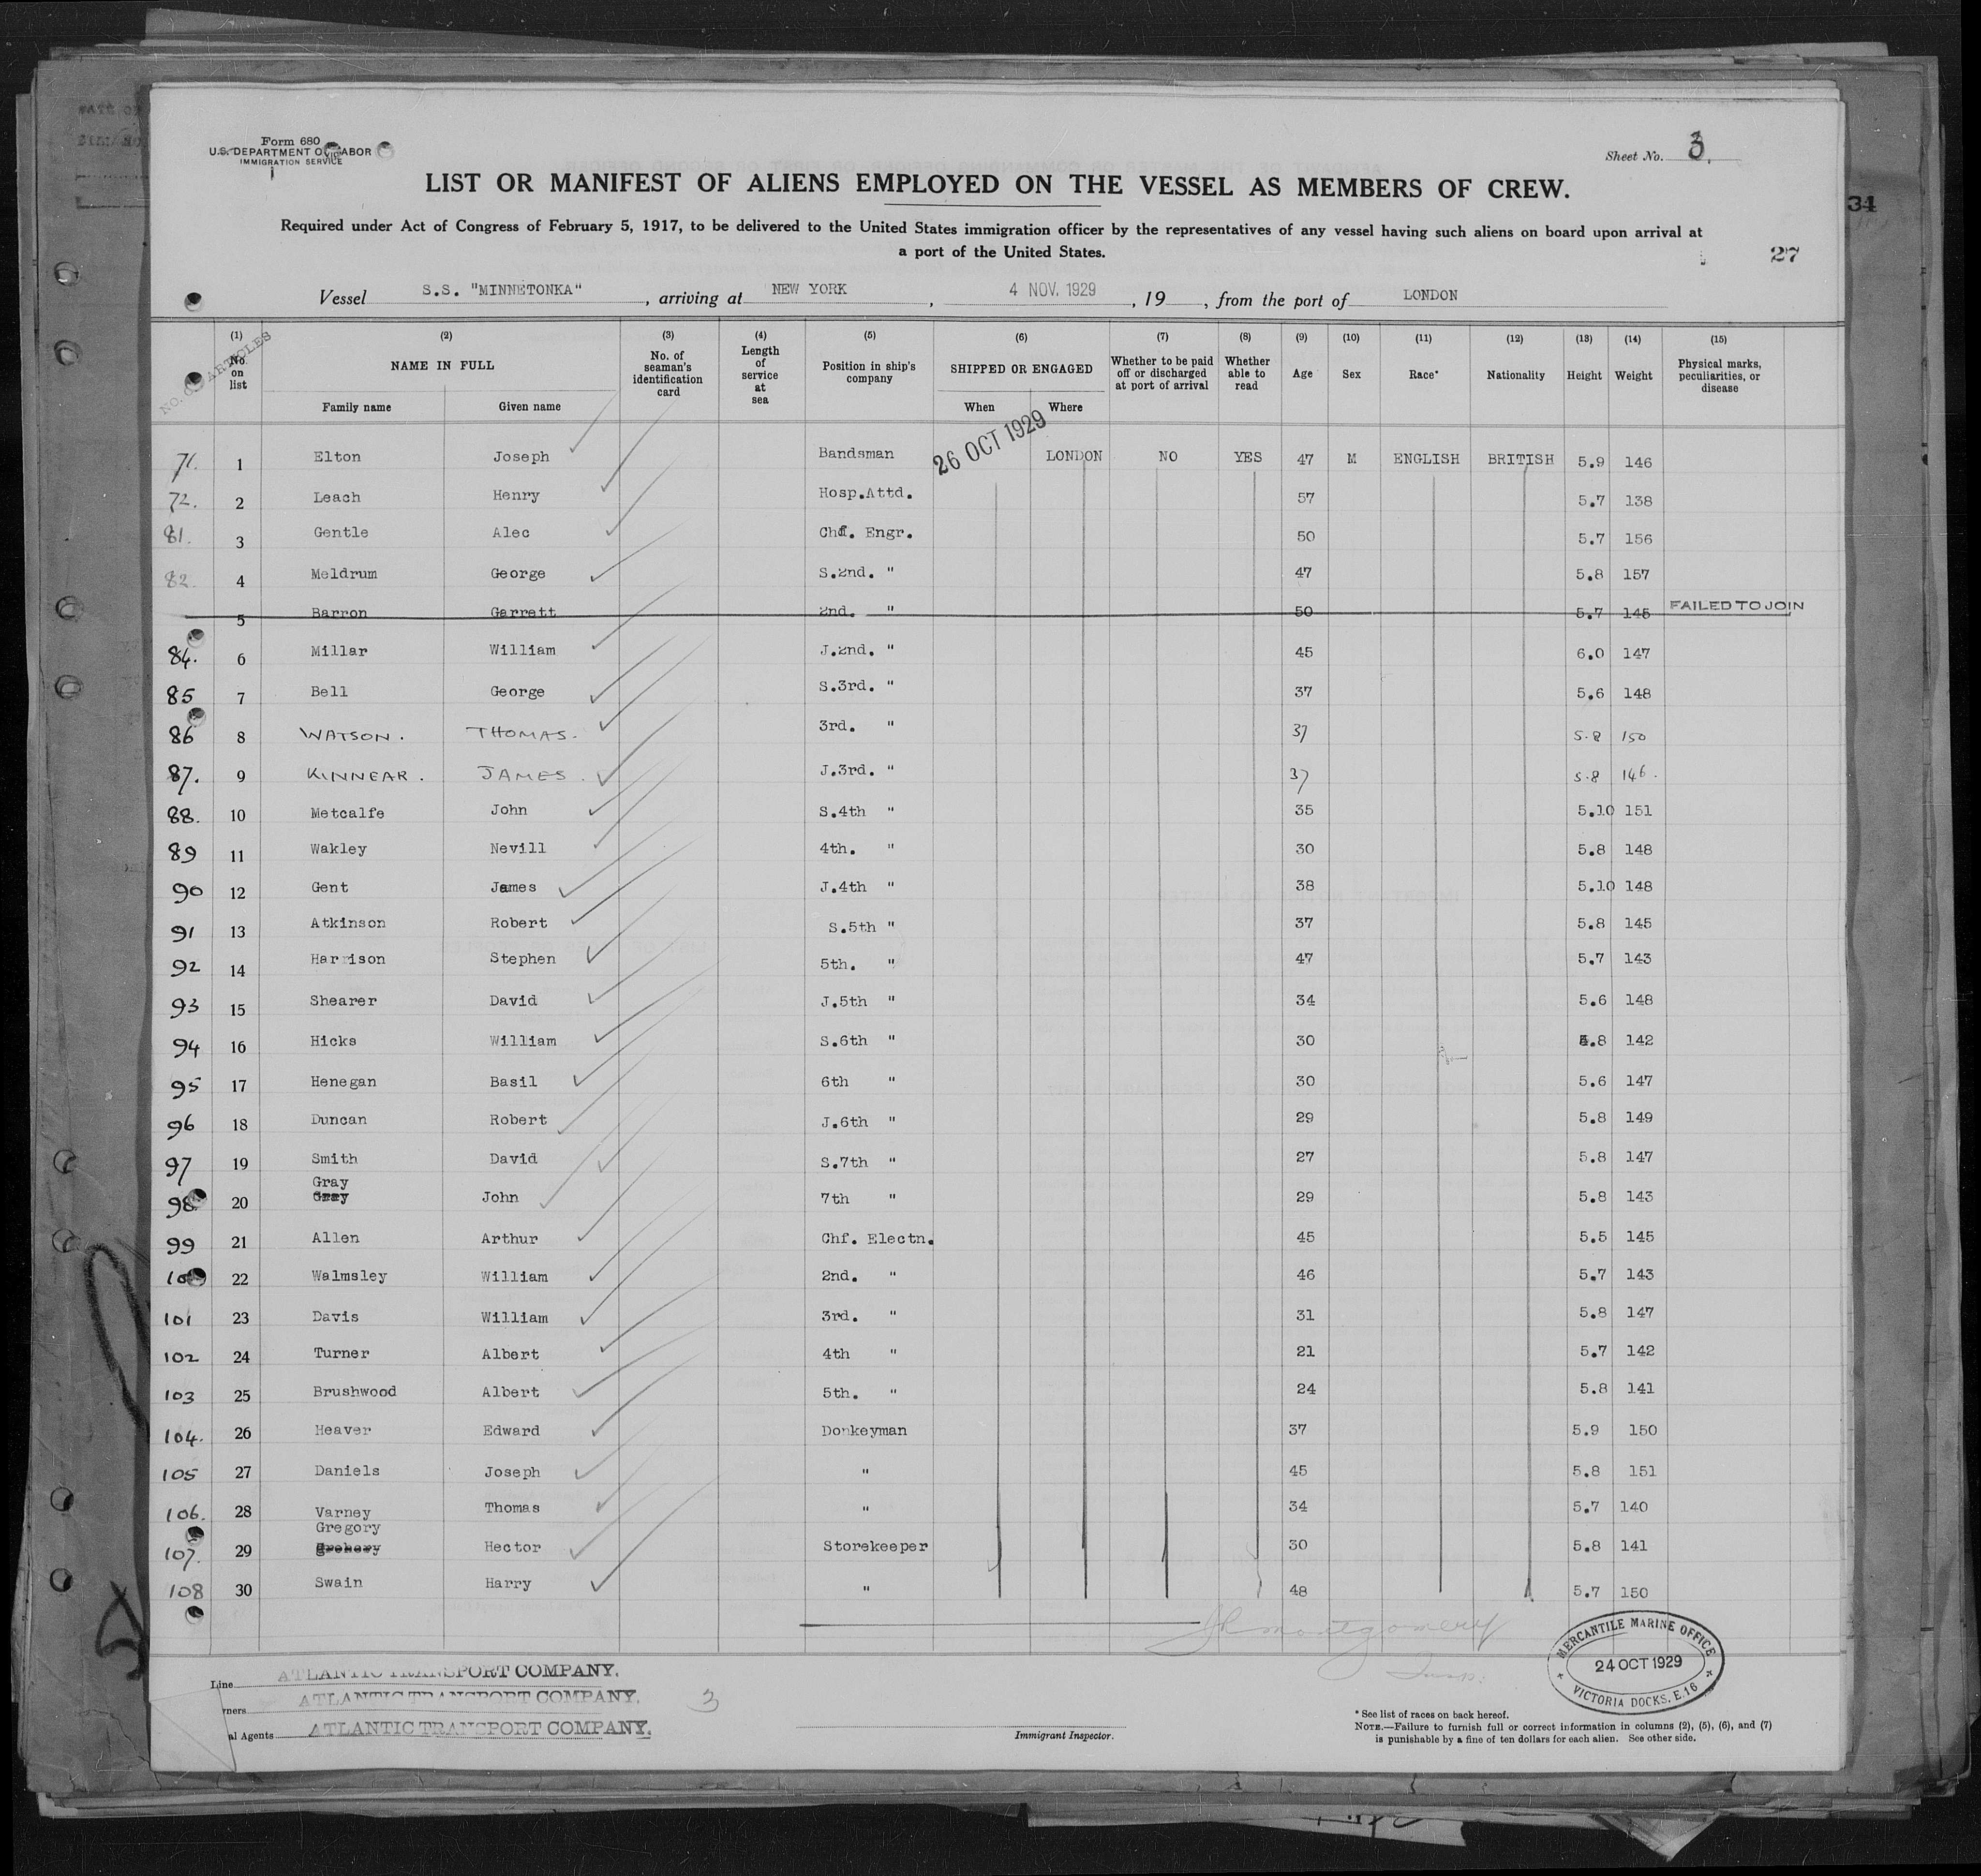 Form 680
U.S. DEPARTMENT OF LABOR
IMMIGRATION SERVICE
Sheet No. 3.
LIST OR MANIFEST OF ALIENS EMPLOYED ON THE VESSEL AS MEMBERS OF CREW.
34
Required under Act of Congress of February 5, 1917, to be delivered to the United States immigration officer by the representatives of any vessel having such aliens on board upon arrival at
a port of the United States.
27
Vessel S.S. "MINNETONKA", arriving at NEW YORK, 4 NOV. 1929, 19, from the port of LONDON
NO. OF ARTICLES
(1) No. on list
(2) NAME IN FULL Family name Given name
(3) No. of seaman's identification card
(4) Length of service at sea
(5) Position in ship's company
(6) SHIPPED OR ENGAGED When Where
(7) Whether to be paid off or discharged at port of arrival
(8) Whether able to read
(9) Age
(10) Sex
(11) Race*
(12) Nationality
(13) Height
(14) Weight
(15) Physical marks, peculiarities, or disease
71. 1 Elton Joseph Bandsman 26 OCT 1929 LONDON NO YES 47 M ENGLISH BRITISH 5.9 146
72. 2 Leach Henry Hosp.Attd. 57 5.7 138
81. 3 Gentle Alec Chf. Engr. 50 5.7 156
82. 4 Meldrum George S.2nd. " 47 5.8 157
5 Barron Garrett 2nd. " 50 5.7 145 FAILED TO JOIN
84. 6 Millar William J.2nd. " 45 6.0 147
85 7 Bell George S.3rd. " 37 5.6 148
86 8 WATSON. THOMAS. 3rd. " 37 5.8 150
87. 9 KINNEAR. JAMES. J.3rd. " 37 5.8 146.
88. 10 Metcalfe John S.4th " 35 5.10 151
89 11 Wakley Nevill 4th. " 30 5.8 148
90 12 Gent James J.4th " 38 5.10 148
91 13 Atkinson Robert S.5th " 37 5.8 145
92 14 Harrison Stephen 5th. " 47 5.7 143
93 15 Shearer David J.5th " 34 5.6 148
94 16 Hicks William S.6th " 30 5.8 142
95 17 Henegan Basil 6th " 30 5.6 147
96 18 Duncan Robert J.6th " 29 5.8 149
97 19 Smith David S.7th " 27 5.8 147
Gray
98 20 Gray John 7th " 29 5.8 143
99 21 Allen Arthur Chf. Electn. 45 5.5 145
22 Walmsley William 2nd. " 46 5.7 143
101 23 Davis William 3rd. " 31 5.8 147
102 24 Turner Albert 4th " 21 5.7 142
103 25 Brushwood Albert 5th. " 24 5.8 141
104. 26 Heaver Edward Donkeyman 37 5.9 150
105 27 Daniels Joseph " 45 5.8 151
106. 28 Varney Thomas " 34 5.7 140
Gregory
107. 29 Hector Storekeeper 30 5.8 141
108 30 Swain Harry " 48 5.7 150
Montgomery
Line ATLANTIC TRANSPORT COMPANY.
ATLANTIC TRANSPORT COMPANY.
Agents ATLANTIC TRANSPORT COMPANY.
3
Immigrant Inspector.
MERCANTILE MARINE OFFICE
24 OCT 1929
VICTORIA DOCKS, E.16
* See list of races on back hereof.
NOTE.—Failure to furnish full or correct information in columns (2), (5), (6), and (7)
is punishable by a fine of ten dollars for each alien. See other side.